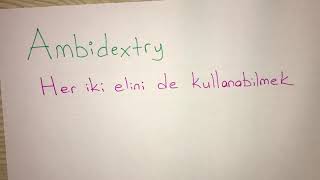 Ambidextry
Her iki elini de kullanabilmek